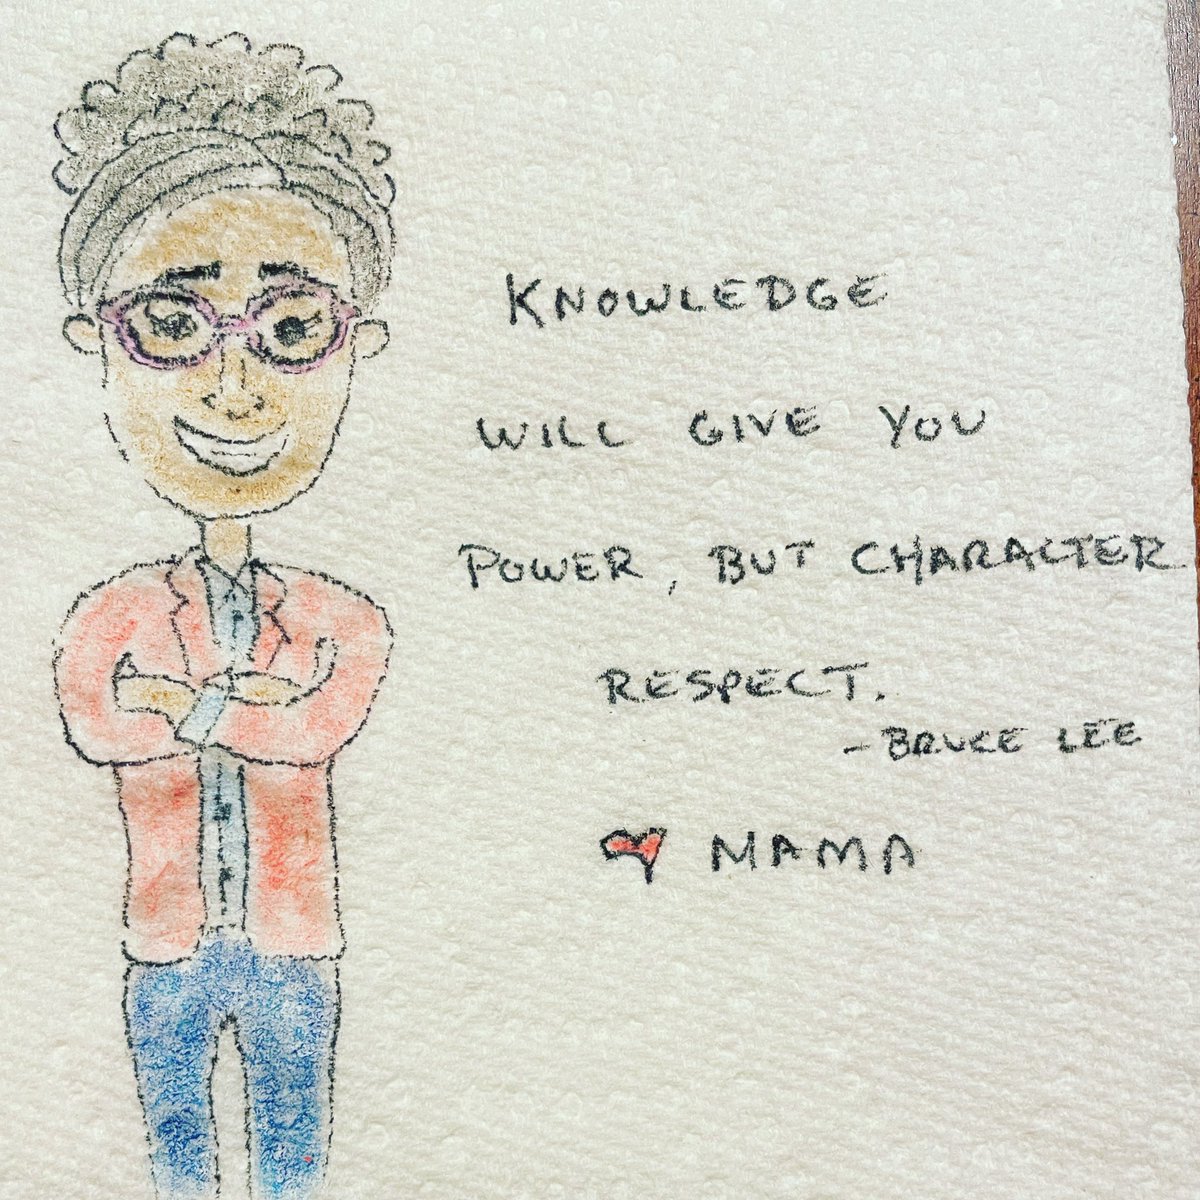 KNOWLEDGE
WILL GIVE YOU
POWER, BUT CHARACTER
RESPECT.
- BRUCE LEE
MAMA